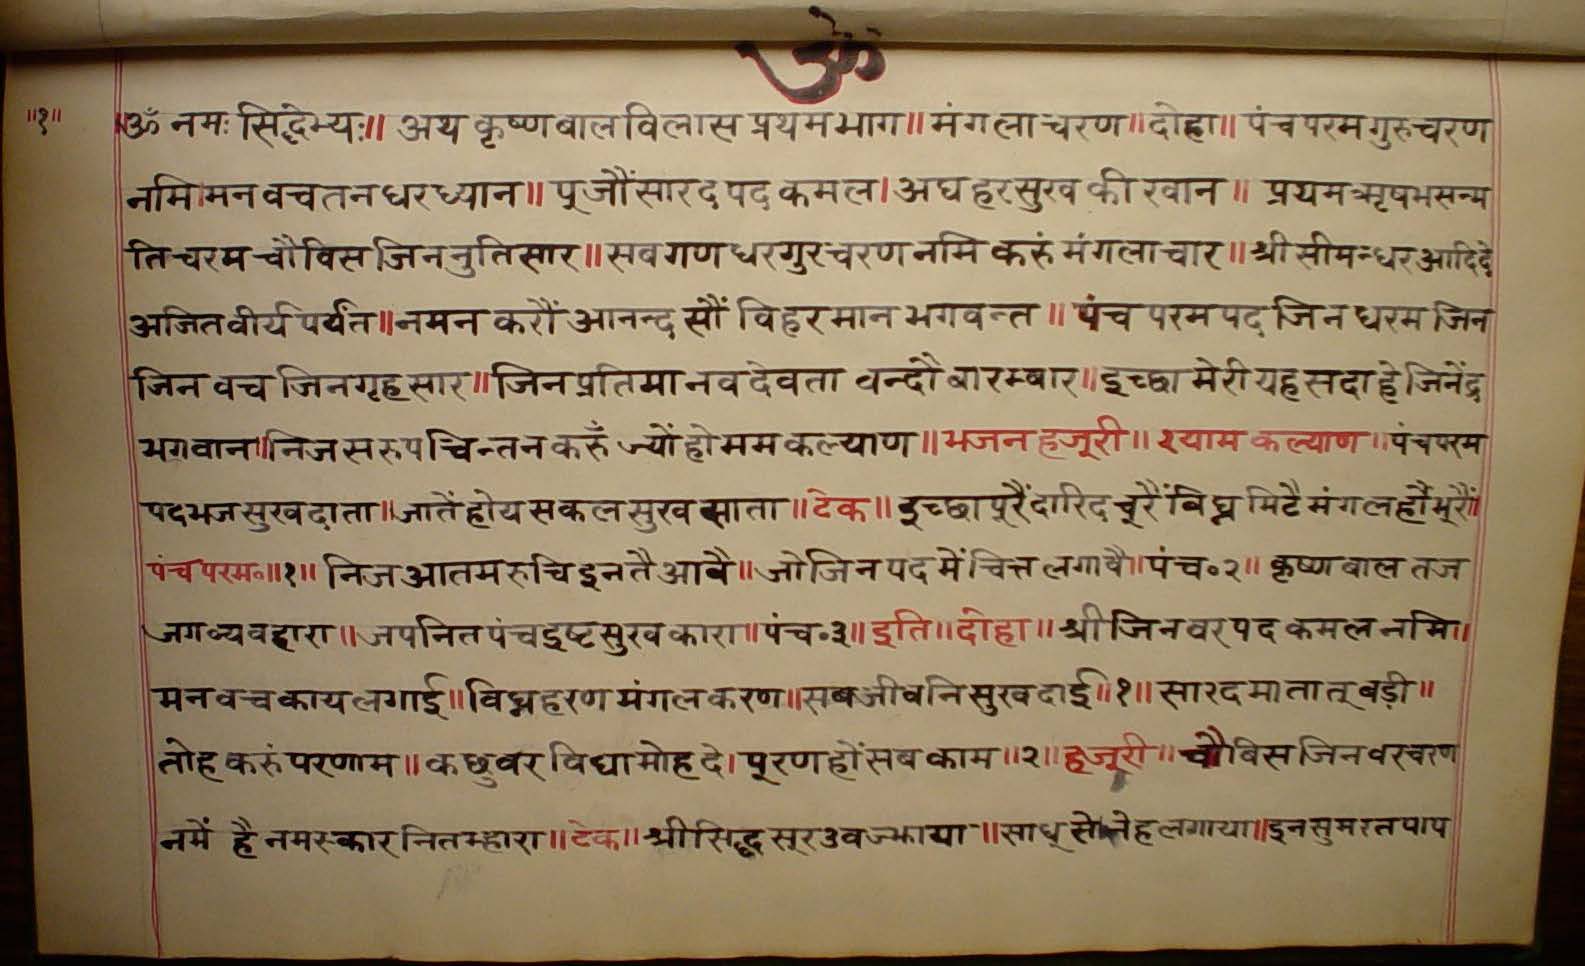 ॐ
॥१॥ ॐ नमः सिद्धेभ्यः॥ अथ कृष्णबालविलास प्रथमभाग॥ मंगलाचरण॥ दोहा॥ पंचपरमगुरुचरण
नमि।मनवचतनधरध्यान॥ पूजौंसारदपदकमल।अघहरसुखकीखान॥ प्रथमऋषभसन्म
तिचरमचौविसजिननुतिसार॥सवगणधरगुरचरणनमिकरुंमंगलाचार॥श्रीसीमन्धरआदिदे
अजितवीर्यपर्यंत॥नमनकरौंआनन्दसौंविहरमानभगवन्त॥ पंचपरमपदजिनधरमजिन
जिनवचजिनगृहसार॥जिनप्रतिमानवदेवतावन्दौबारम्बार॥इच्छामेरीयहसदाहेजिनेंद्र
भगवान॥निजसरुपचिन्तनकरुँज्योंहोममकल्याण॥भजनहजूरी॥श्यामकल्याण॥पंचपरम
पदभजसुखदाता॥जातेंहोयसकलसुखसाता॥टेक॥इच्छापूरैंदारिदचूरैंविघ्नमिटैमंगल
पंचपरम॰॥१॥ निजआतमरुचिइनतैआवै॥जोजिनपदमेंचित्तलगावै॥पंच॰२॥ कृष्णबालतज
जगव्यवहारा॥जपनितपंचइष्टसुखकारा॥पंच॰३॥इति॥दोहा॥श्रीजिनवरपदकमलनमि॥
मनवचकायलगाई॥विघ्नहरणमंगलकरण॥सबजीवनिसुखदाई॥१॥सारदमातातूबड़ी॥
तोहकरुंपरणाम॥कछुवरविद्यामोहदे।पूरणहोंसबकाम॥२॥हजूरी॥चौविसजिनवरचरण
नमें है नमस्कारनितम्हारा॥टेक॥श्रीसिद्धसूरउवज्झाया॥साधूसेनेहलगाया॥इनसुमरतपाप